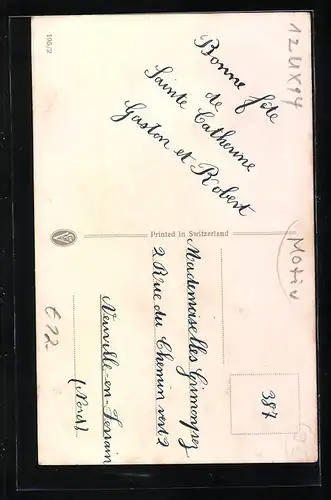 195/2
Bonne fête
de
Sainte Catherine
Gaston et Robert
Printed in Switzerland
Mademoiselles Grimonprez
2 Rue du Chemin vert 2
Neuville-en-Ferrain
(Nord)
387
Motiv